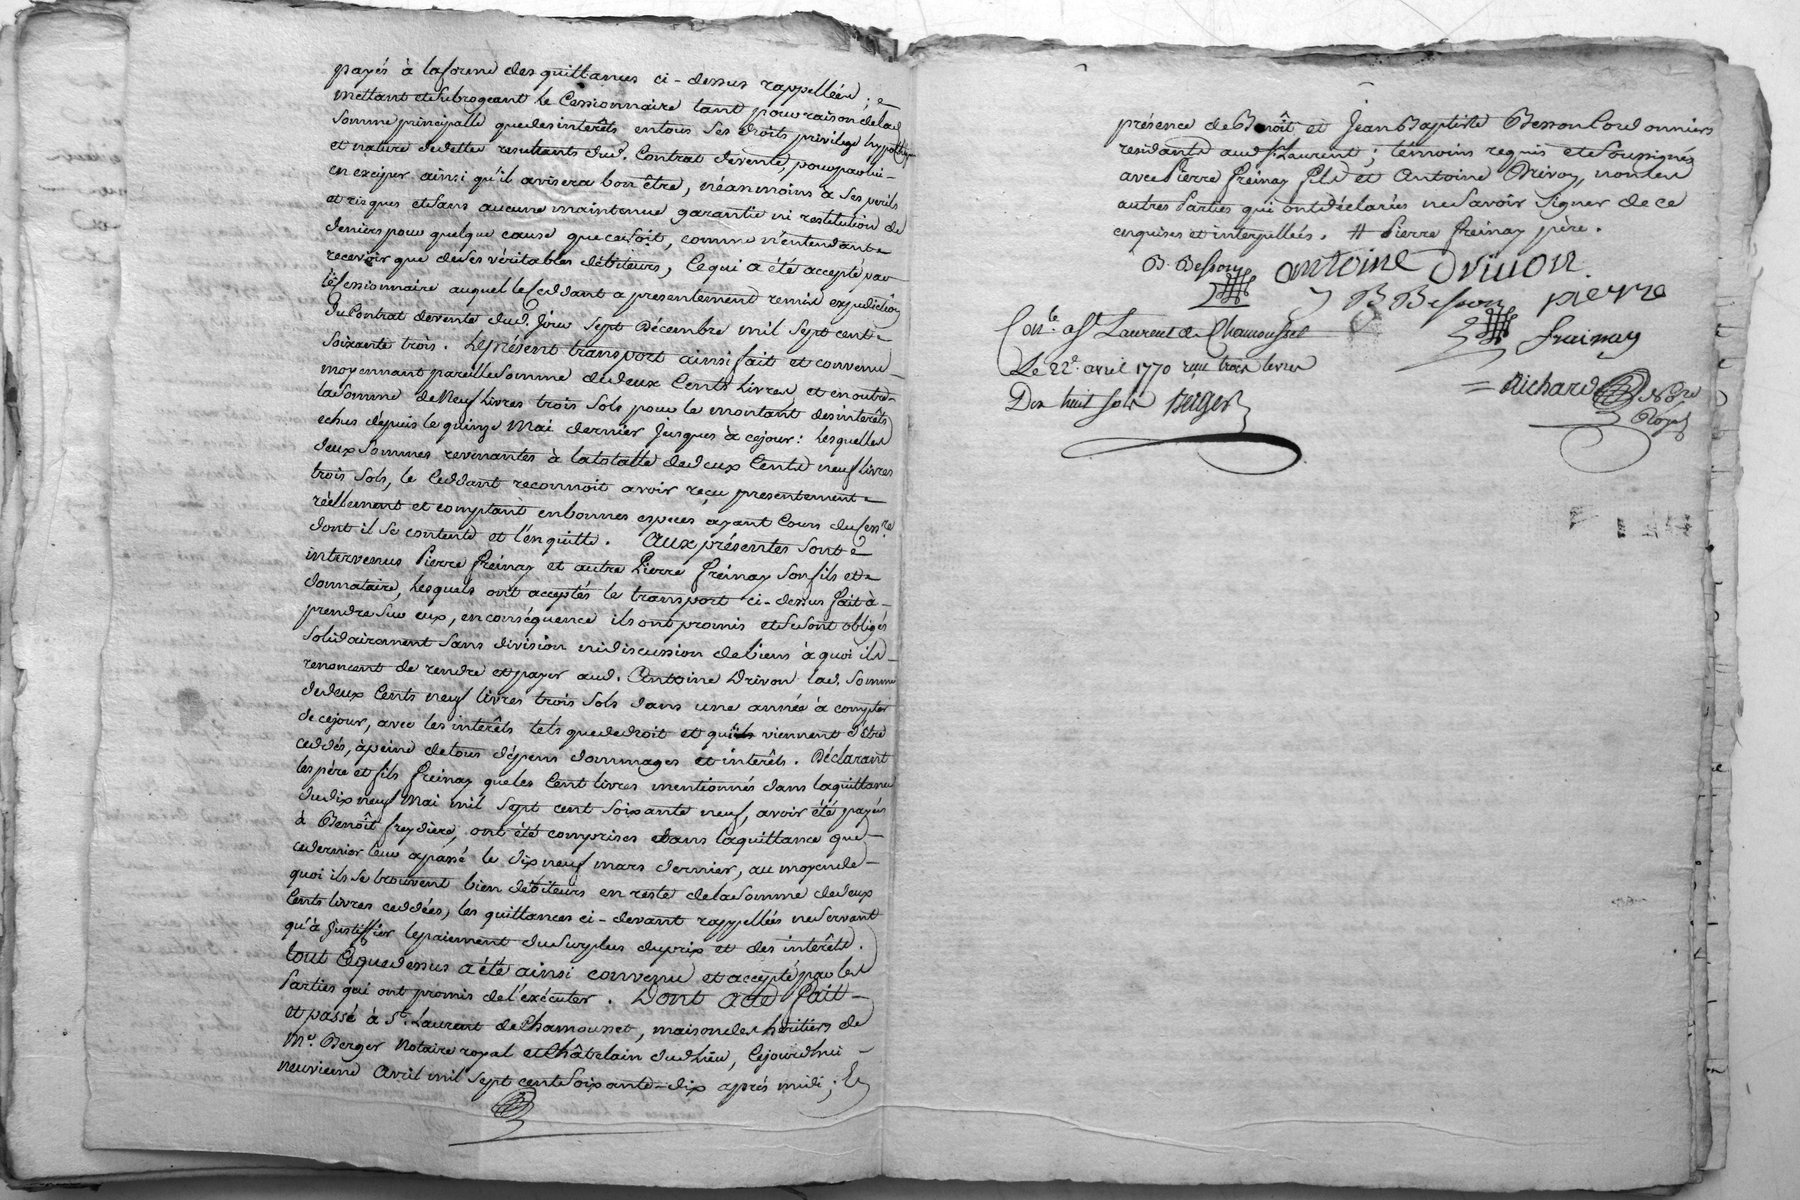 payés à la forme des quittances ci-dessus rappellées ;
mettant et subrogeant le Cessionnaire tant pour raison de lad
somme principalle que des interêts en tous ses droits privilege hypotheque
et nature de dettes resultants dud. Contrat de vente, pour par lui-
en exciper ainsi qu'il avisera bon être, néanmoins a ses perils
et risques et sans aucune maintenue garantie ni restitution de
deniers pour quelque cause que ce soit, comme n'entendant
recevoir que de ses véritables débiteurs, Ce qui a été accepté par
le Cessionnaire auquel le Ceddant a presentement remis expedition
du Contrat de vente dud. Jour sept Décembre mil sept cent
soixante trois. Le présent transport ainsi fait et convenu
moyennant pareille somme de deux Cents Livres, et en outre
la somme de Neuf Livres trois sols pour le montant des interêts
echus depuis le quinze Mai dernier jusques à ce jour : Lesquelles
deux sommes revenantes à la totalle de deux Cents neuf livres
trois sols, le Ceddant reconnoit avoir reçu presentement
réellement et comptant en bonnes especes ayant Cours du Cess.re
dont il se contente et l'en quitte. Aux présentes sont
intervenus Pierre freinay et autre Pierre freinay son fils et
donnataire, Lesquels ont acceptés le transport ci-dessus fait à
prendre sur eux, en conséquence ils ont promis et se sont obligés
solidairement sans division ni discussion de biens à quoi ils
renoncent de rendre et payer aud. Antoine Drivon lad. somme
de deux Cents neuf livres trois sols dans une année à compter
de ce jour, avec les interêts tels que de droit et qu'ils viennent d'être
ceddés, à peine de tous dépens dommages et interêts. Déclarant
les père et fils freinay que les Cent livres mentionnés dans la quittance
du dix neuf Mai mil sept cent soixante neuf, avoir été payés
à Benoît freydiere, ont été comprises dans la quittance que
ce dernier leur a passé le dix neuf mars dernier, au moyen de
quoi ils se trouvent bien débiteurs en reste de la somme de deux
Cents livres ceddées, les quittances ci-devant rappellées ne servant
qu'à Justifier le paiement du surplus du prix et des interêts.
tout Ce que dessus a été ainsi convenu et accepté par les
Parties qui ont promis de l'exécuter. Dont acte fait
et passé à S.t Laurent de Chamousset, maison des héritiers de
M.e Berger Notaire royal et Châtelain dud. lieu, Cejourdhui
neuvieme Avril mil sept cent soixante-dix après midi ; En
présence de Benoît et Jean Baptiste Besson Cordonniers
residants aud. S.t Laurent ; témoins requis et soussignés
avec Pierre freinay fils et Antoine Drivon, non les
autres Parties qui ont déclarées ne savoir signer de ce
enquises et interpellées. # Pierre freinay père.
B. Besson antoine drivon
J B Besson pierre
frainay
Con.lé a S.t Laurent de Chamousset
Le 22.e avril 1770 reçu trois livres
Dix huit sols Berger
Richard No.re
Royal